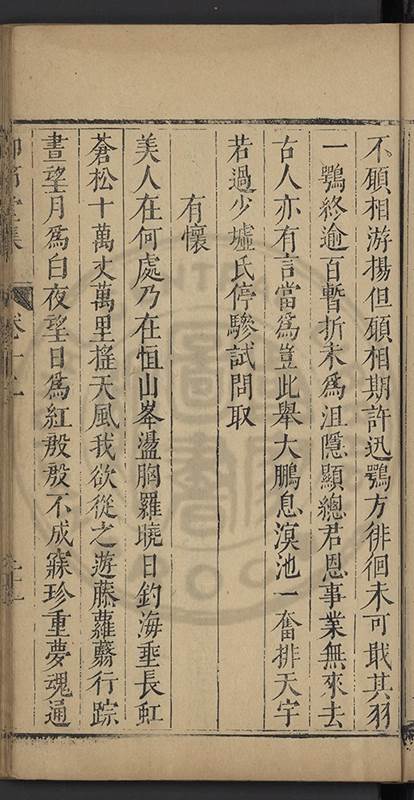 不願相游揚但願相期許迅鶚方徘徊未可戢其羽
一鶚終逾百暫折未爲沮隱顯總君恩事業無來去
古人亦有言當爲豈此舉大鵬息溟池一奮排天宇
若過少墟氏停驂試問取
有懷
美人在何處乃在恒山峯盪胸羅曉日釣海垂長虹
蒼松十萬丈萬里搖天風我欲從之遊藤蘿翳行踪
晝望月爲白夜望日爲紅殷殷不成寐珍重夢魂通
卷十一